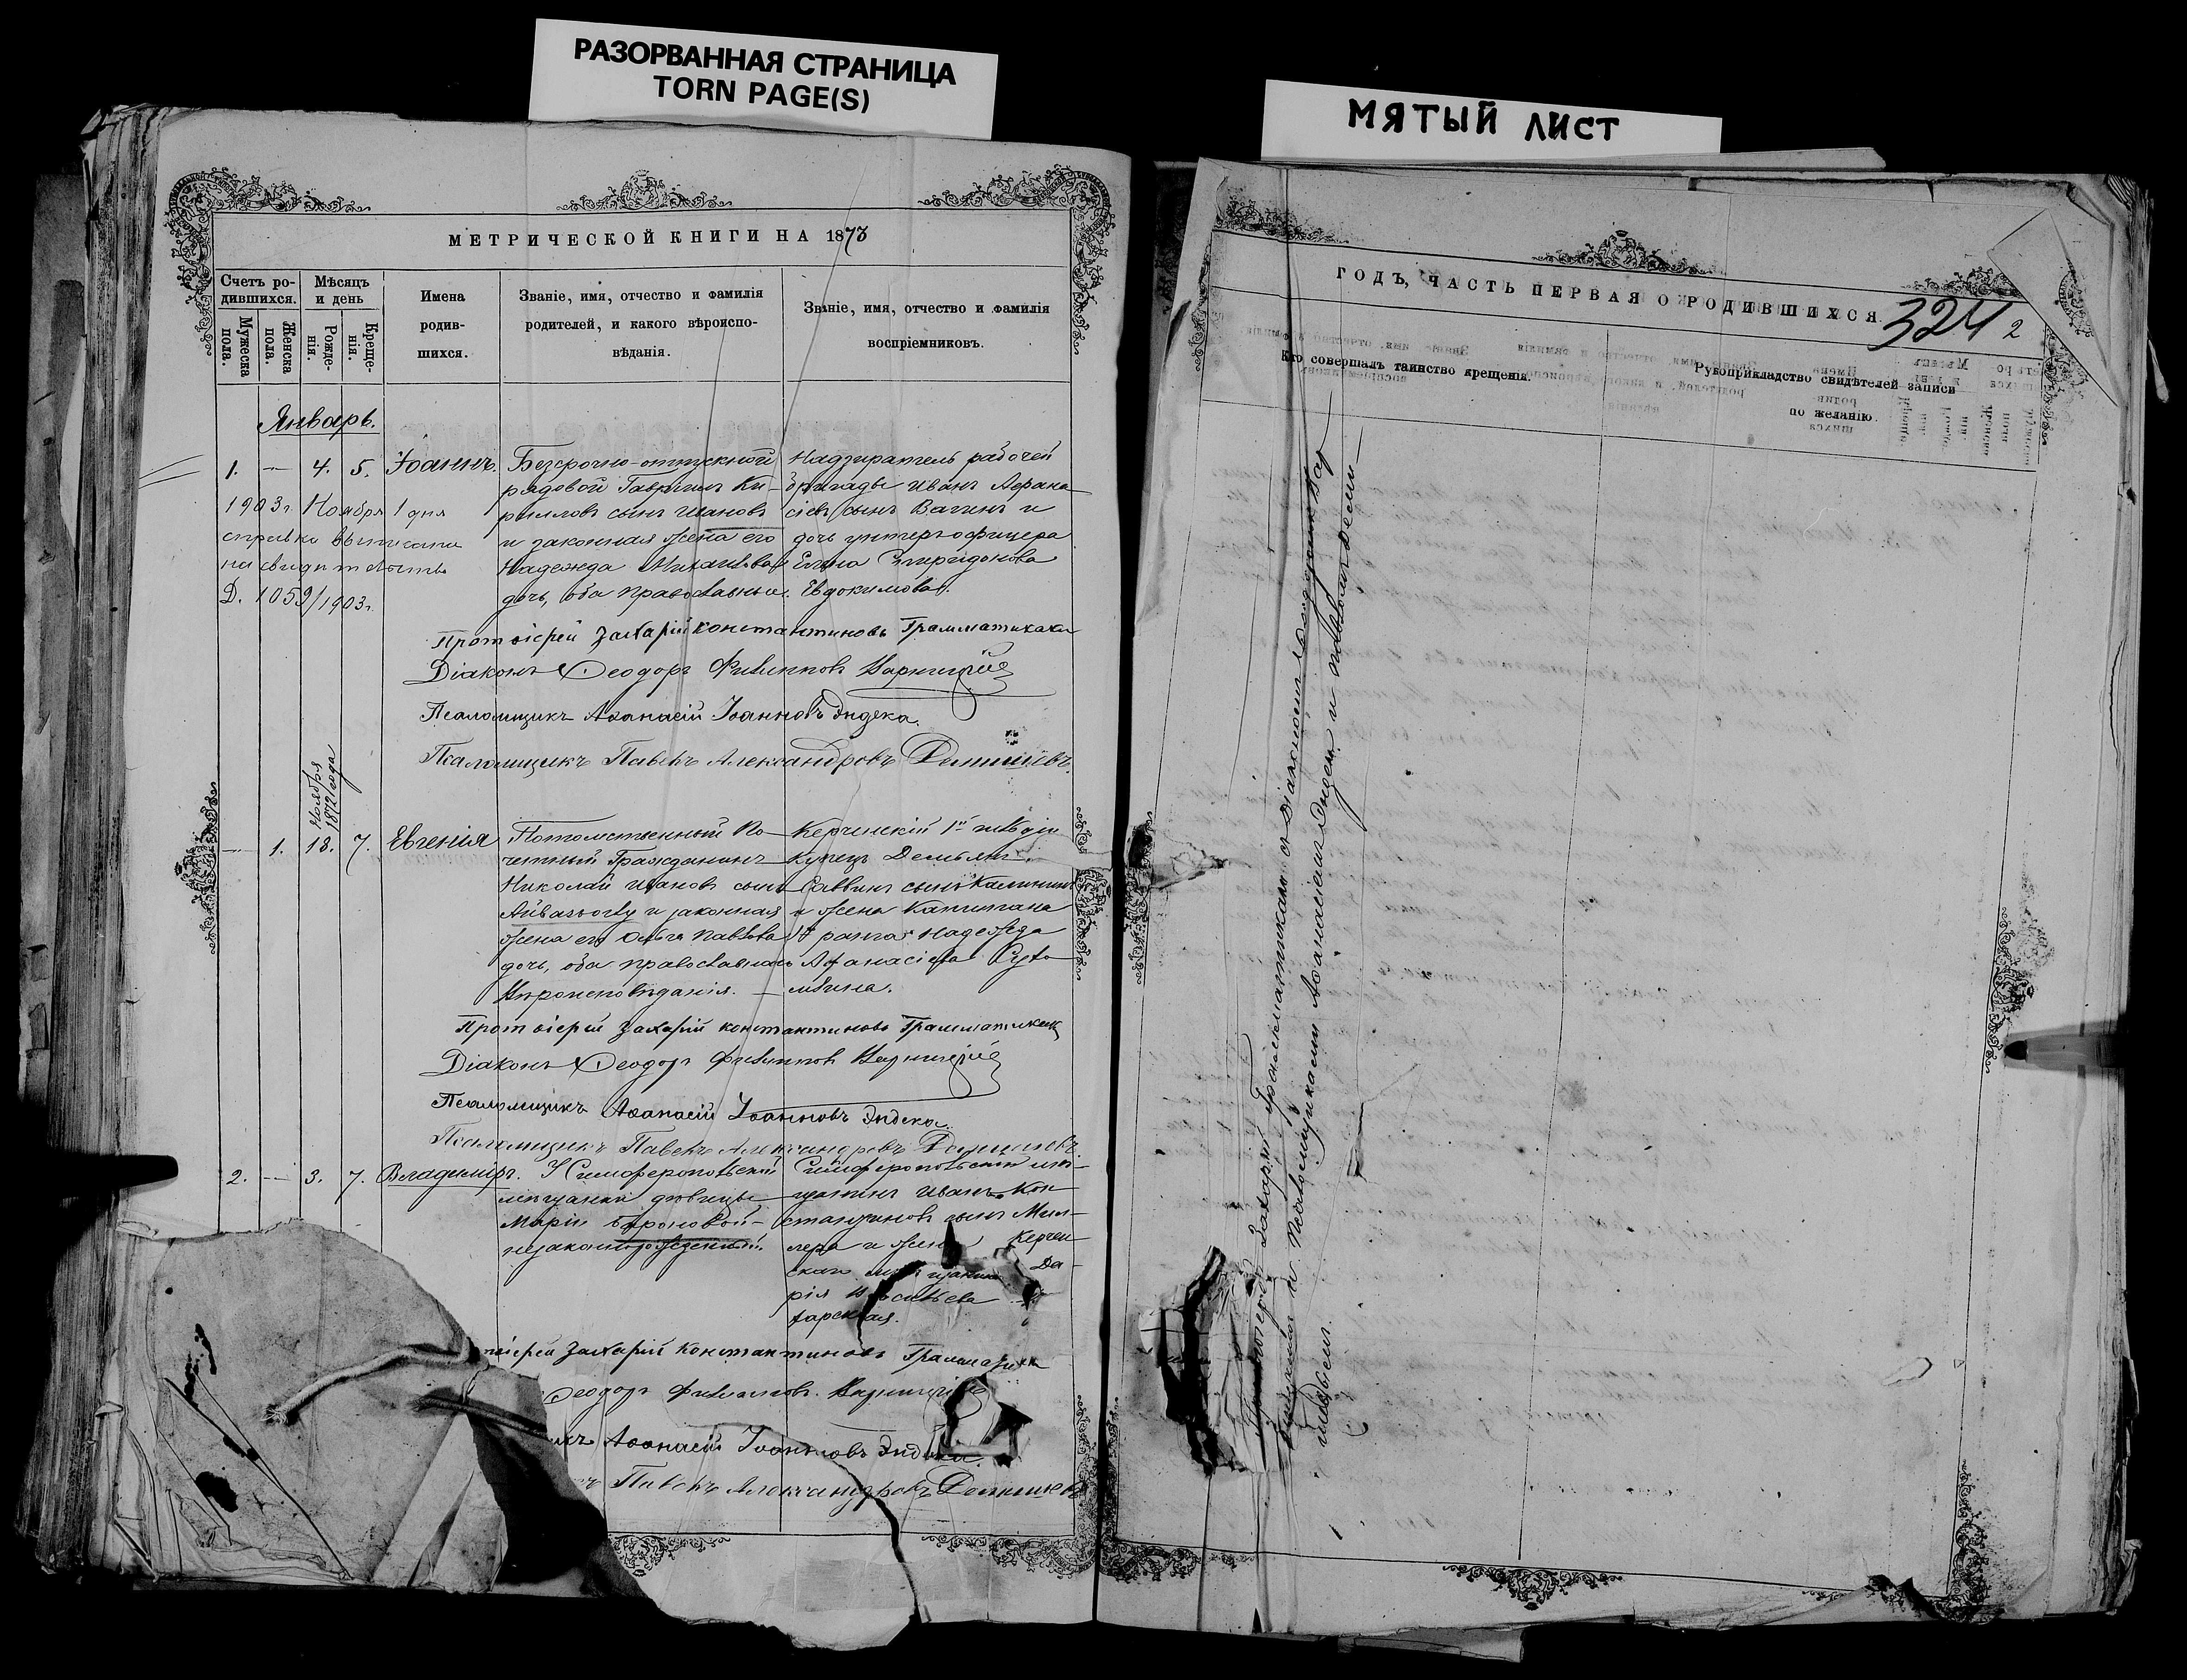 РАЗОРВАННАЯ СТРАНИЦА
TORN PAGE(S)
МЯТЫЙ ЛИСТ
МЕТРИЧЕСКОЙ КНИГИ НА 1873
Счетъ ро-
дившихся.
Мужеска
пола.
Женска
пола.
Мѣсяцъ
и день
Рожде-
нія.
Креще-
нія.
Имена
родив-
шихся.
Званіе, имя, отчество и фамилія
родителей, и какого вѣроиспо-
вѣданія.
Званіе, имя, отчество и фамилія
воспріемниковъ.
Январь.
1. — 4. 5. Іоаннъ.
1903 г. Ноября 1 дня
справка
Д. 1059/1903 г.
Безсрочно-отпускной
рядовой Гавріилъ Ки-
рилловъ сынъ Ивановъ
и законная жена его
Надежда Михайлова
дочь, оба православные.
Надзиратель рабочей
бригады Иванъ Афана-
сіевъ сынъ Вагинъ и
дочь унтеръ-офицера
Елена Спиридонова
Евдокимова.
Протоіерей Захарій Константиновъ Грамматикаки
Діаконъ Ѳеодоръ Филипповъ
Псаломщикъ Аѳанасій Іоанновъ Эндека.
Псаломщикъ Павелъ Александровъ
Ноября
1872 года
— 1. 18. 7. Евгенія
Потомственный По-
четный Гражданинъ
Николай Ивановъ сынъ
и законная
жена его Ольга Павлова
дочь, оба православнаго
Вѣроисповѣданія. —
Керченскій 1й гильдіи
Купецъ Демьянъ
Саввинъ сынъ Калининъ
и жена Капитана
ранга Надежда
Афанасіева
Протоіерей Захарій Константиновъ Грамматикаки
Діаконъ Ѳеодоръ Филипповъ
Псаломщикъ Аѳанасій Іоанновъ Эндека.
Псаломщикъ Павелъ Александровъ
2. — 3. 7. Владиміръ.
У Симферопольской
мѣщанки дѣвицы
Маріи
незаконнорожденный.
Симферопольскій мѣ-
щанинъ Иванъ Кон-
стантиновъ сынъ Мил-
лера и жена Керчен-
скаго мѣщанина Да-
рія Васильева
Захарій Константиновъ
Ѳеодоръ Филипповъ
Аѳанасій Іоанновъ Эндека.
Павелъ Александровъ
ГОДЪ, ЧАСТЬ ПЕРВАЯ О РОДИВШИХСЯ.
324 2
Кто совершалъ таинство крещенія.
Рукоприкладство свидѣтелей записи
по желанію.
Протоіерей Захарій Грамматикаки съ Діакономъ
и Псаломщиками Аѳанасіемъ Эндека и Павломъ